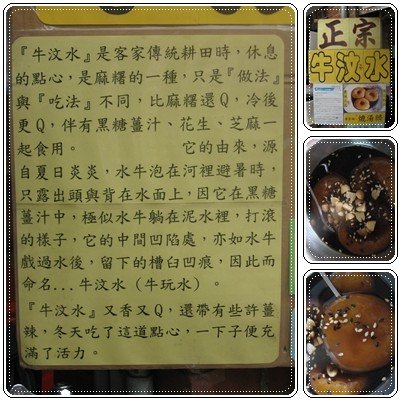 『牛汶水』是客家傳統耕田時，休息
的點心，是麻糬的一種，只是『做法』
與『吃法』不同，比麻糬還Q，冷後
更Q，伴有黑糖薑汁、花生、芝麻一
起食用。 它的由來，源
自夏日炎炎，水牛泡在河裡避暑時，
只露出頭與背在水面上，因它在黑糖
薑汁中，極似水牛躺在泥水裡，打滾
的樣子，它的中間凹陷處，亦如水牛
戲過水後，留下的槽臼凹痕，因此而
命名...牛汶水（牛玩水）。
『牛汶水』又香又Q，還帶有些許薑
辣，冬天吃了這道點心，一下子便充
滿了活力。
正宗
牛汶水